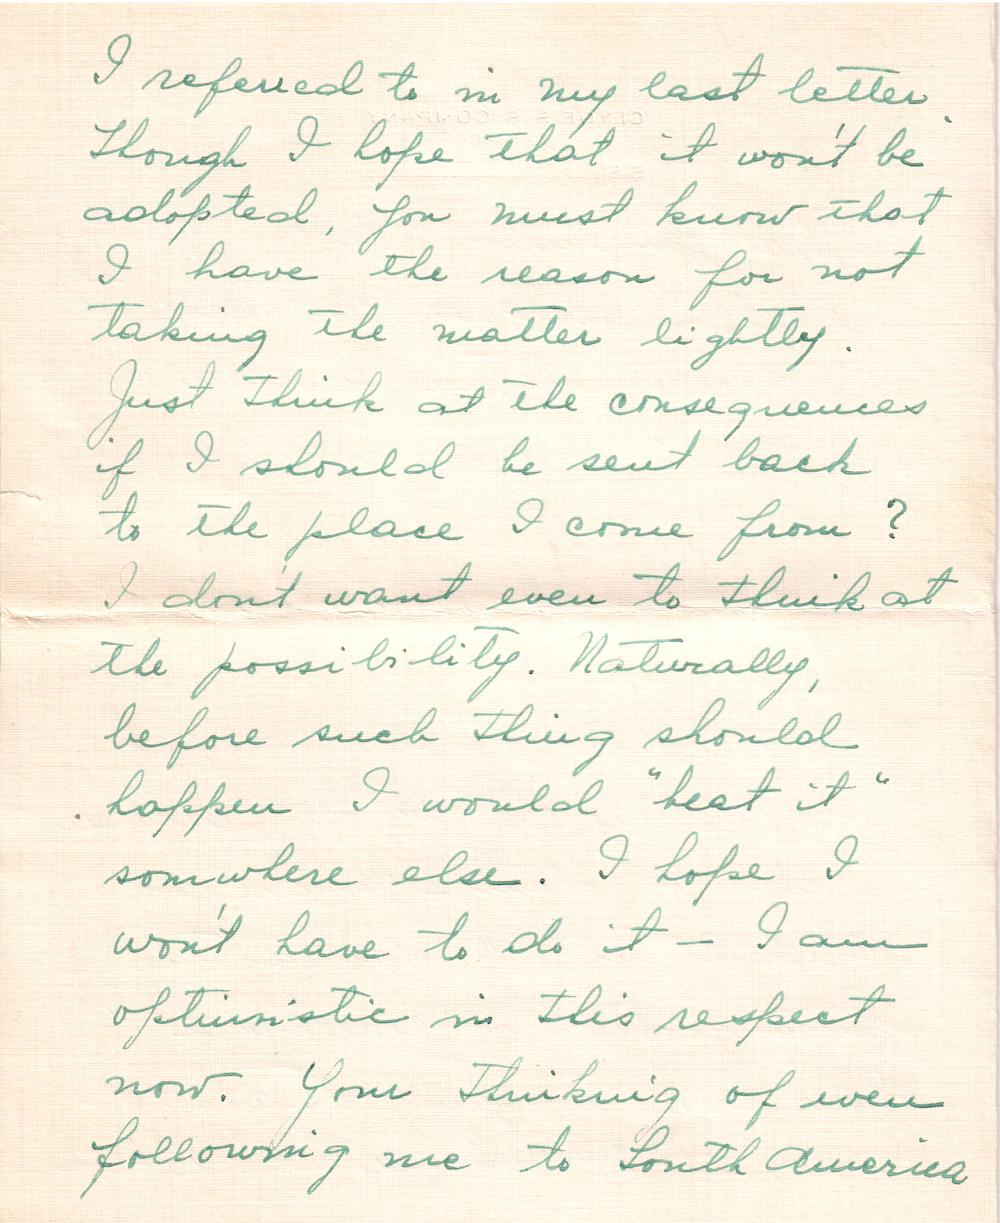 I referred to in my last letter.
Though I hope that it won't be
adopted, you must know that
I have the reason for not
taking the matter lightly.
Just think at the consequences
if I should be sent back
to the place I come from?
I don't want even to think at
the possibility. Naturally,
before such thing should
happen I would "beat it"
somwhere else. I hope I
won't have to do it — I am
optimistic in this respect
now. Your thinking of even
following me to South America